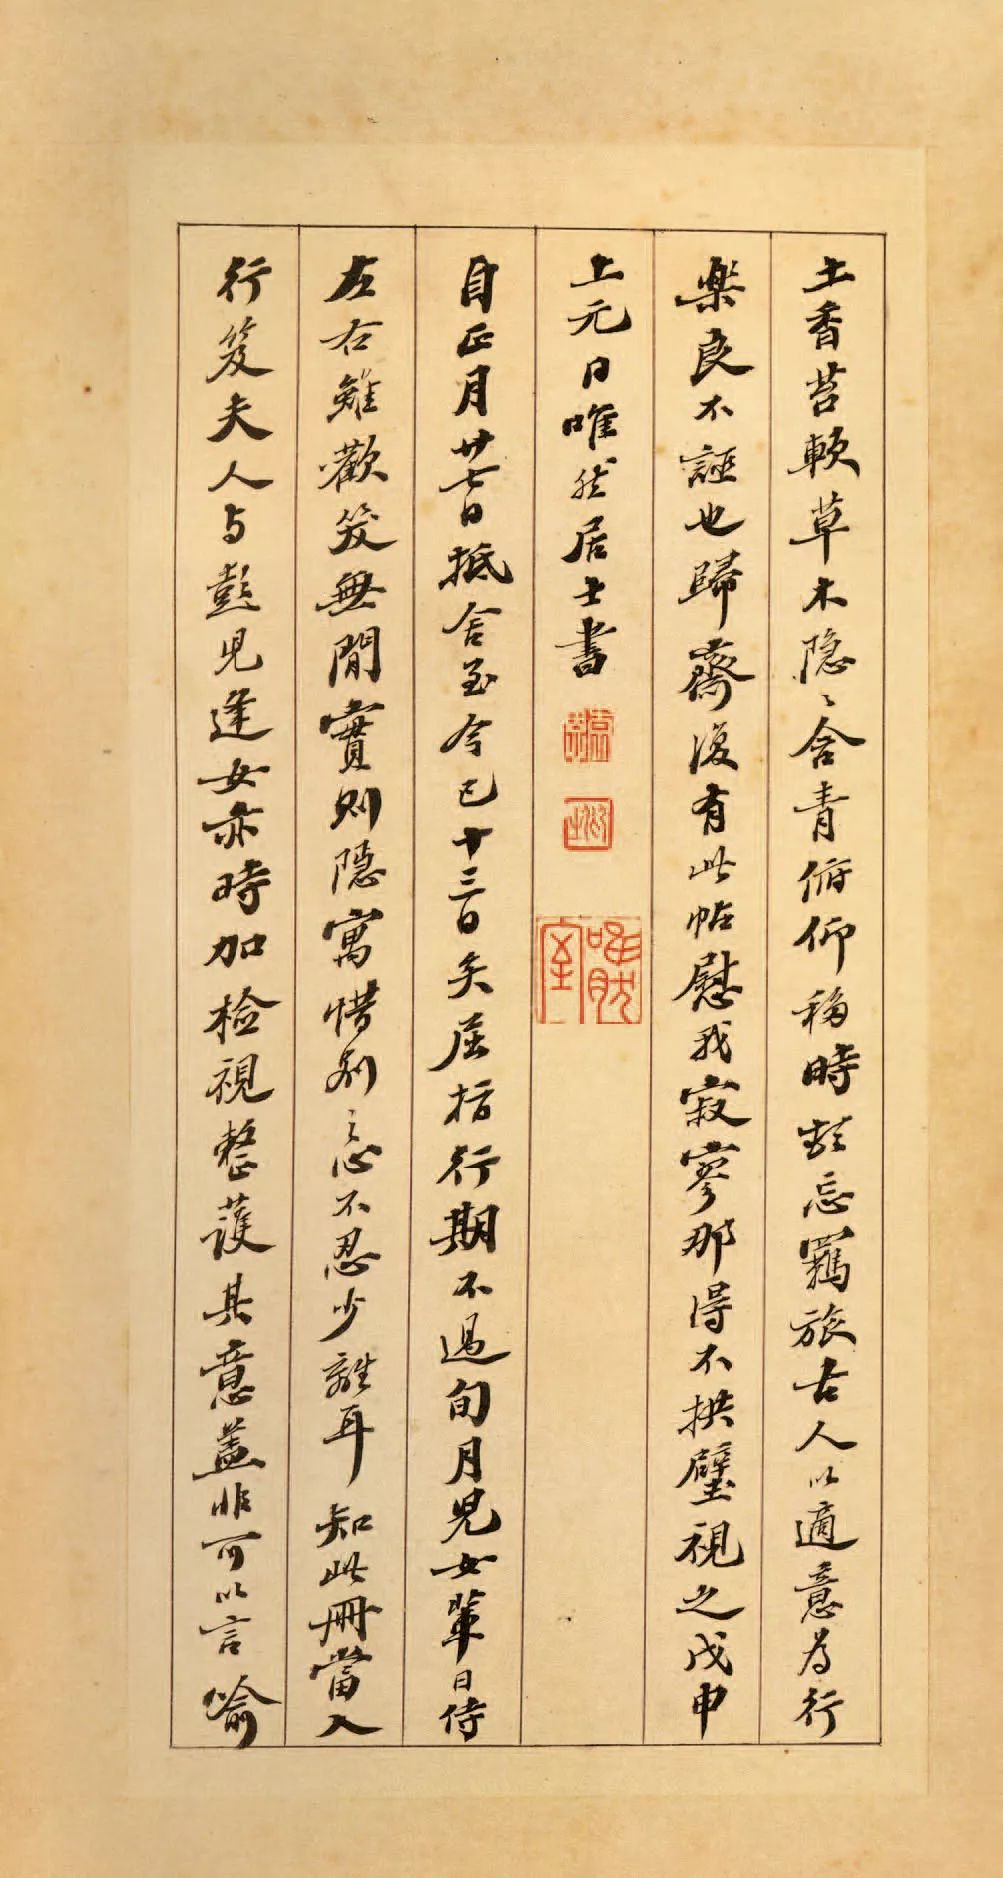 土香苔軟草木隐〻含青俯仰移時頓忘羈旅古人以適意為行
樂良不誣也歸齋後有此帖慰我寂寥那得不拱璧視之戊申
上元日唯然居士書
唯然室
自正月廿七日抵舍至今已十三日矣屈指行期不過旬月児女輩日侍
左右雖歡笑無間實則隱寓惜別之忱不忍少離耳知此冊當入
行笈夫人与彭児逢女亦時加檢視整護其意蓋非可以言喻